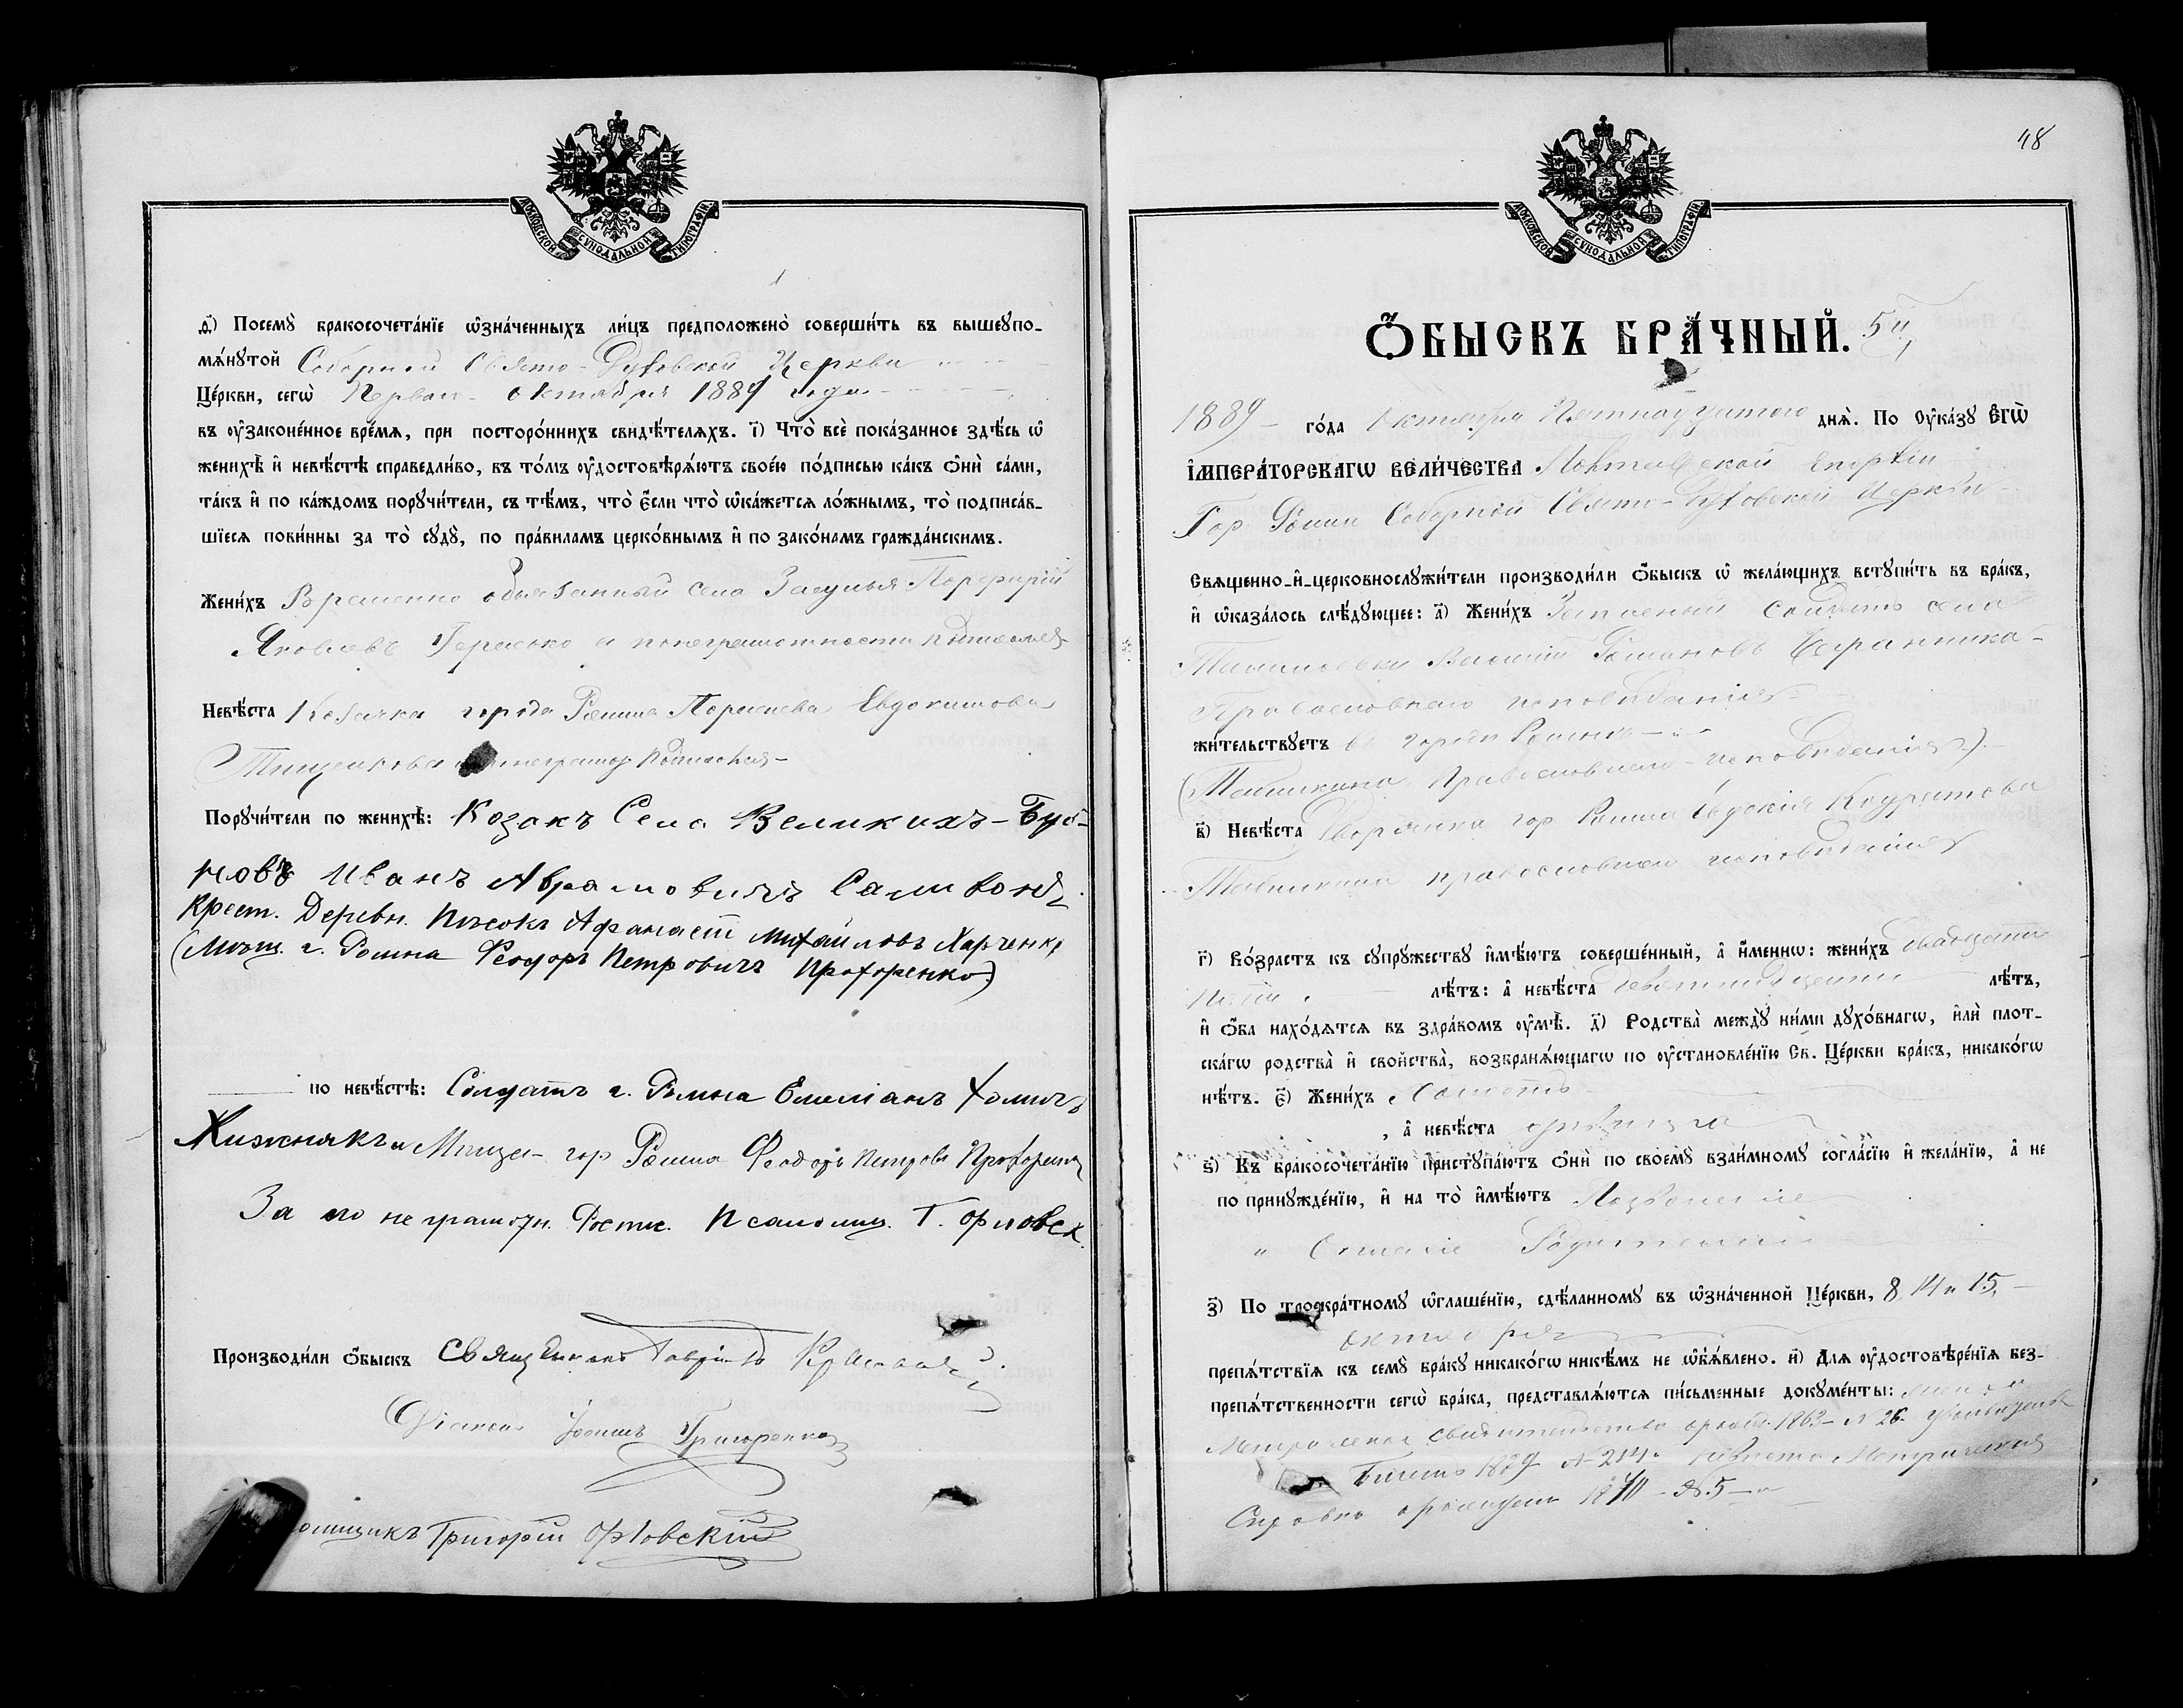 МОСКОВСКОЙ СѴНОДАЛЬНОЙ ТИПОГРАФІИ.
д҃і) Посемꙋ̀ бракосочета́нїе ѡ҆зна́ченныхъ ли́цъ предположено̀ соверши́ть въ вышеꙋпо-
мѧ́нꙋтой Соборной Свято-Духовской Церкви
Це́ркви, сегѡ̀ Перваго Октября 1889 года
въ ᲂу҆законе́нное вре́мѧ, при посторо́ннихъ свидѣ́телѧхъ. і҃) Что̀ всѐ пока́занное здѣ́сь ѡ҆
женихѣ̀ и҆ невѣ́стѣ справедли́во, въ то́мъ ᲂу҆достовѣрѧ́ютъ свое́ю по́дписью ка́къ ѻ҆нѝ са́ми,
та́къ и҆ по ка́ждомъ порꙋчи́тели, съ тѣ́мъ, что̀ є҆́сли что̀ ѡ҆ка́жетсѧ ло́жнымъ, то̀ подписа́в-
шїесѧ пови́нны за то̀ сꙋдꙋ̀, по пра́виламъ церко́внымъ и҆ по зако́намъ гражда́нскимъ.
Жени́хъ Временно обязанный села Засулья Порфирій
Яковлевъ Герасько а по неграмотности
Невѣ́ста Козачка города Ромна Евдокимова
Тищенкова неграмот.
Порꙋчи́тели по женихѣ̀: Козакъ Села Великихъ-Буб-
новъ Иванъ Аврамовичъ Саливонъ
Крест. Деревн. Пѣсокъ Афанасій Михайловъ Харченко
(Мѣщ. г. Ромна Феодоръ Петровичъ Прохоренко)
по невѣ́стѣ: Солдатъ г. Ромна Емеліанъ Хомичъ
Хижнякъ и Мѣщан. гор Ромна Феодоръ Петровъ Прохоренко
За не грамотн. Росп. Псаломщ. Г. Орловск.
Производи́ли ѻ҆́быскъ Священникъ Гавріилъ
Діаконъ Іоаннъ Григоренко
омщикъ Григорій Орловскій
48
МОСКОВСКОЙ СѴНОДАЛЬНОЙ ТИПОГРАФІИ.
Ѻ҆́БЫСКЪ БРА́ЧНЫЙ. 5й
1889 го́да Октября Пятнадцатого днѧ̀. По Оу҆ка́зꙋ Є҆гѡ̀
І҆мпера́торскагѡ вели́чества Полтавской Епархіи
Гор. Ромна Соборной Свято-Духовской Церкви
Свѧщенно-и҆-церковнослꙋжи́тели производи́ли ѻ҆́быскъ ѡ҆ жела́ющихъ встꙋпи́ть въ бра́къ,
и҆ ѡ҆каза́лось слѣ́дꙋющее: а҃) Жени́хъ Запасный Солдатъ села
Василій Романовъ
Православнаго исповѣданія
жи́тельствꙋетъ въ городѣ Ромнѣ
Православнаго исповѣданія)
в҃) Невѣ́ста Дворянка гор Ромна Евдокія
православнаго исповѣданія
г҃) Во́зрастъ къ сꙋпрꙋ́жествꙋ и҆мѣ́ютъ соверше́нный, а҆ и҆́меннѡ: жени́хъ двадцати
пяти лѣ́тъ: а҆ невѣ́ста девятнадцати лѣ́тъ,
и҆ ѻ҆́ба нахо́дѧтсѧ въ здра́вомъ ᲂу҆мѣ̀. д҃) Родства̀ междꙋ̀ ни́ми дꙋхо́внагѡ, и҆лѝ плот-
ска́гѡ родства̀ и҆ сво́йства̀, возбранѧ́ющагѡ по ᲂу҆становле́нїю Св. Це́ркви бра́къ, никако́гѡ
нѣ́тъ. є҃) Жени́хъ холостъ
, а҆ невѣ́ста дѣвица
ѕ҃) Къ бракосочета́нїю пристꙋпа́ютъ ѻ҆нѝ по своемꙋ̀ взаи́мномꙋ согла́сїю и҆ жела́нїю, а҆ не
по принꙋжде́нїю, и҆ на то̀ и҆мѣ́ютъ Позволеніе
и Согласіе Родителей
з҃) По троекра́тномꙋ ѡ҆глаше́нїю, сдѣ́ланномꙋ въ ѡ҆зна́ченной Це́ркви, 8, 14 и 15.
октября
препѧ́тствїѧ къ семꙋ̀ бра́кꙋ никако́гѡ никѣ́мъ не ѡ҆б̾ѧ́влено. и҃) Длѧ ᲂу҆достовѣре́нїѧ без-
препѧ́тственности сегѡ̀ бра́ка, представлѧ́ютсѧ пи́сьменные докꙋме́нты: жених
Метрическое свидѣтельство 1863 № 26
Билетъ 1889 № 214. невѣста Метрическая
Справка 1870 - № 5